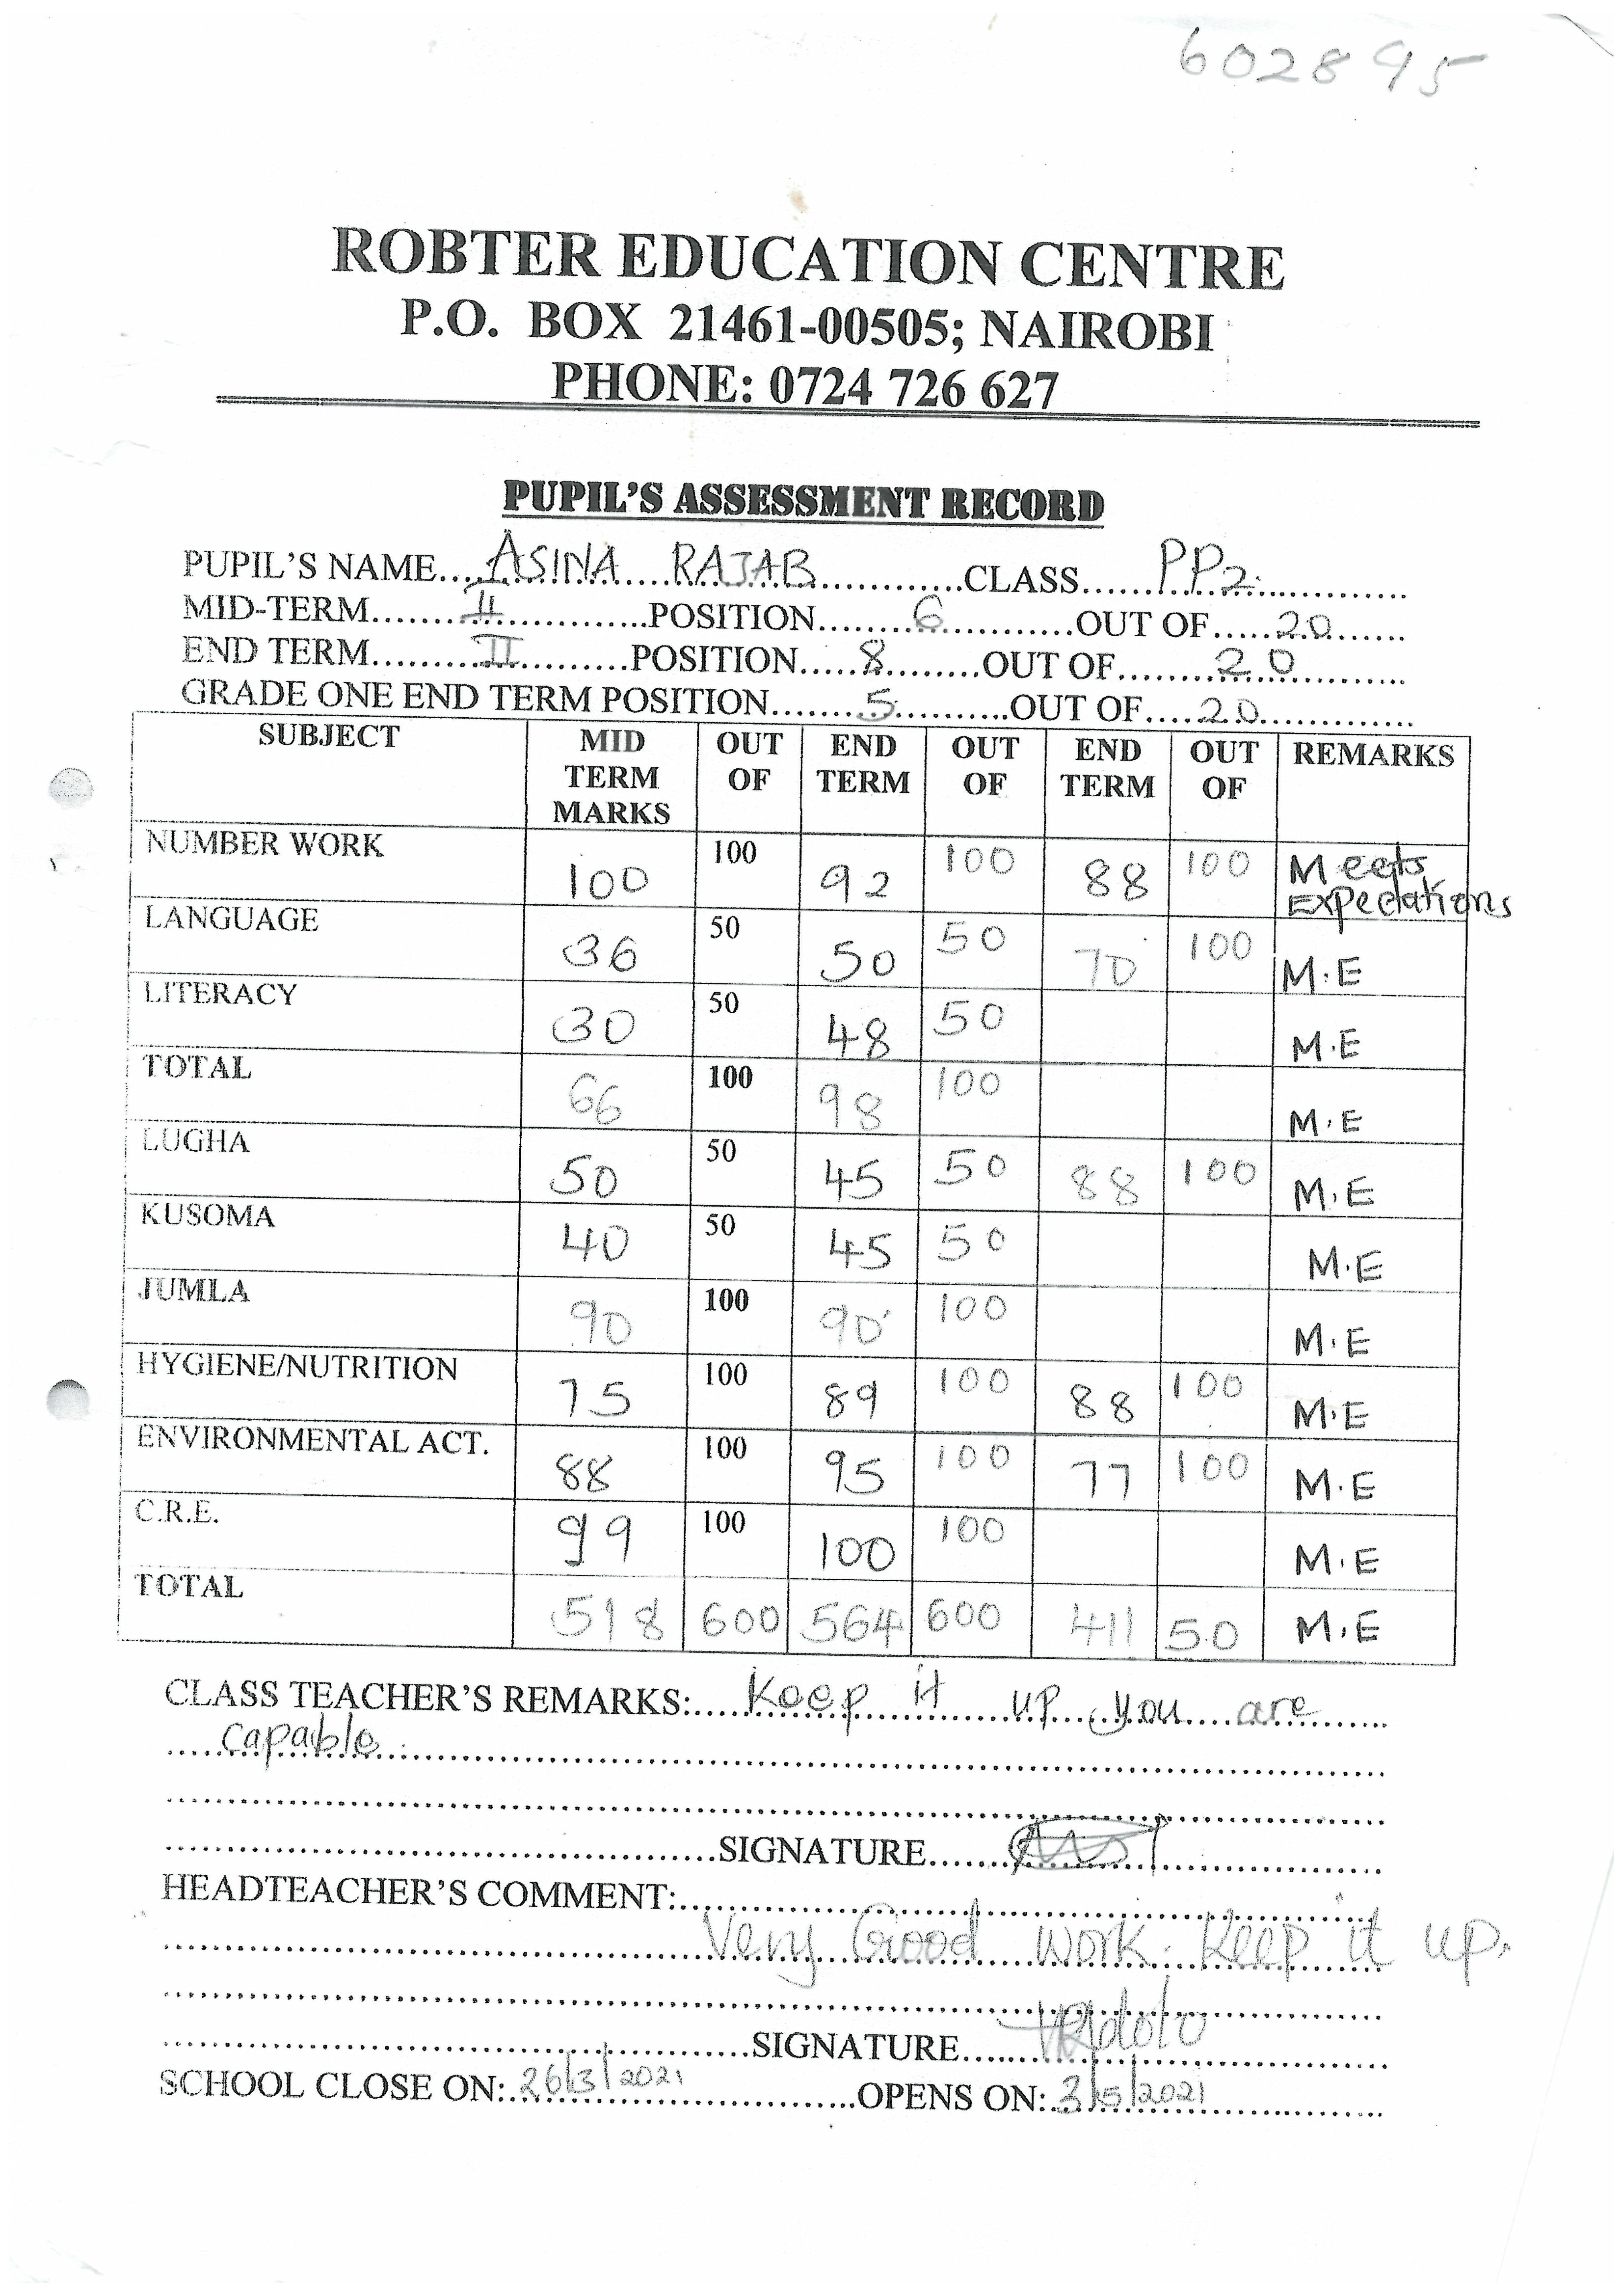 602895
ROBTER EDUCATION CENTRE
P.O. BOX 21461-00505; NAIROBI
PHONE: 0724 726 627
PUPIL'S ASSESSMENT RECORD
PUPIL'S NAME....ASINA RAJAB.............CLASS......PP2.............
MID-TERM........II.............POSITION........6............OUT OF.....20.......
END TERM.........II.........POSITION.....8........OUT OF........20..........
GRADE ONE END TERM POSITION.......5..........OUT OF....20..............
SUBJECT MID TERM MARKS OUT OF END TERM OUT OF END TERM OUT OF REMARKS
NUMBER WORK 100 100 92 100 88 100 Meets Expectations
LANGUAGE 36 50 50 50 70 100 M.E
LITERACY 30 50 48 50 M.E
TOTAL 66 100 98 100 M.E
LUGHA 50 50 45 50 88 100 M.E
KUSOMA 40 50 45 50 M.E
JUMLA 90 100 90 100 M.E
HYGIENE/NUTRITION 75 100 89 100 88 100 M.E
ENVIRONMENTAL ACT. 88 100 95 100 77 100 M.E
C.R.E. 99 100 100 100 M.E
TOTAL 518 600 564 600 411 50 M.E
CLASS TEACHER'S REMARKS:....Keep it up you are
capable
SIGNATURE
HEADTEACHER'S COMMENT:
Very Good work. Keep it up.
SIGNATURE
SCHOOL CLOSE ON: 26/3/2021 OPENS ON: 3/5/2021